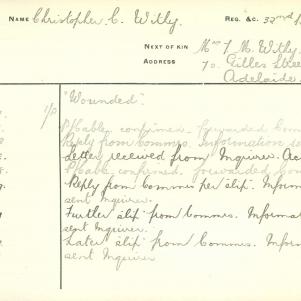 NAME Christopher C. Withy. REG. &c. 32nd
NEXT OF KIN Mrs F. M. Withy
ADDRESS 70. Gilles Stree
Adelaide.
"Wounded".
P/Cable confirmed. Forwarded Comm
Reply from Commns. Information se
Letter received from Inquirer. Acc
P/Cable confirmed. forwarded Com
Reply from Commns per slip. Inform
sent Inquirer.
Further slip from Commns. Informat
sent Inquirer.
Later slip from Commns. Inform
sent Inquirer